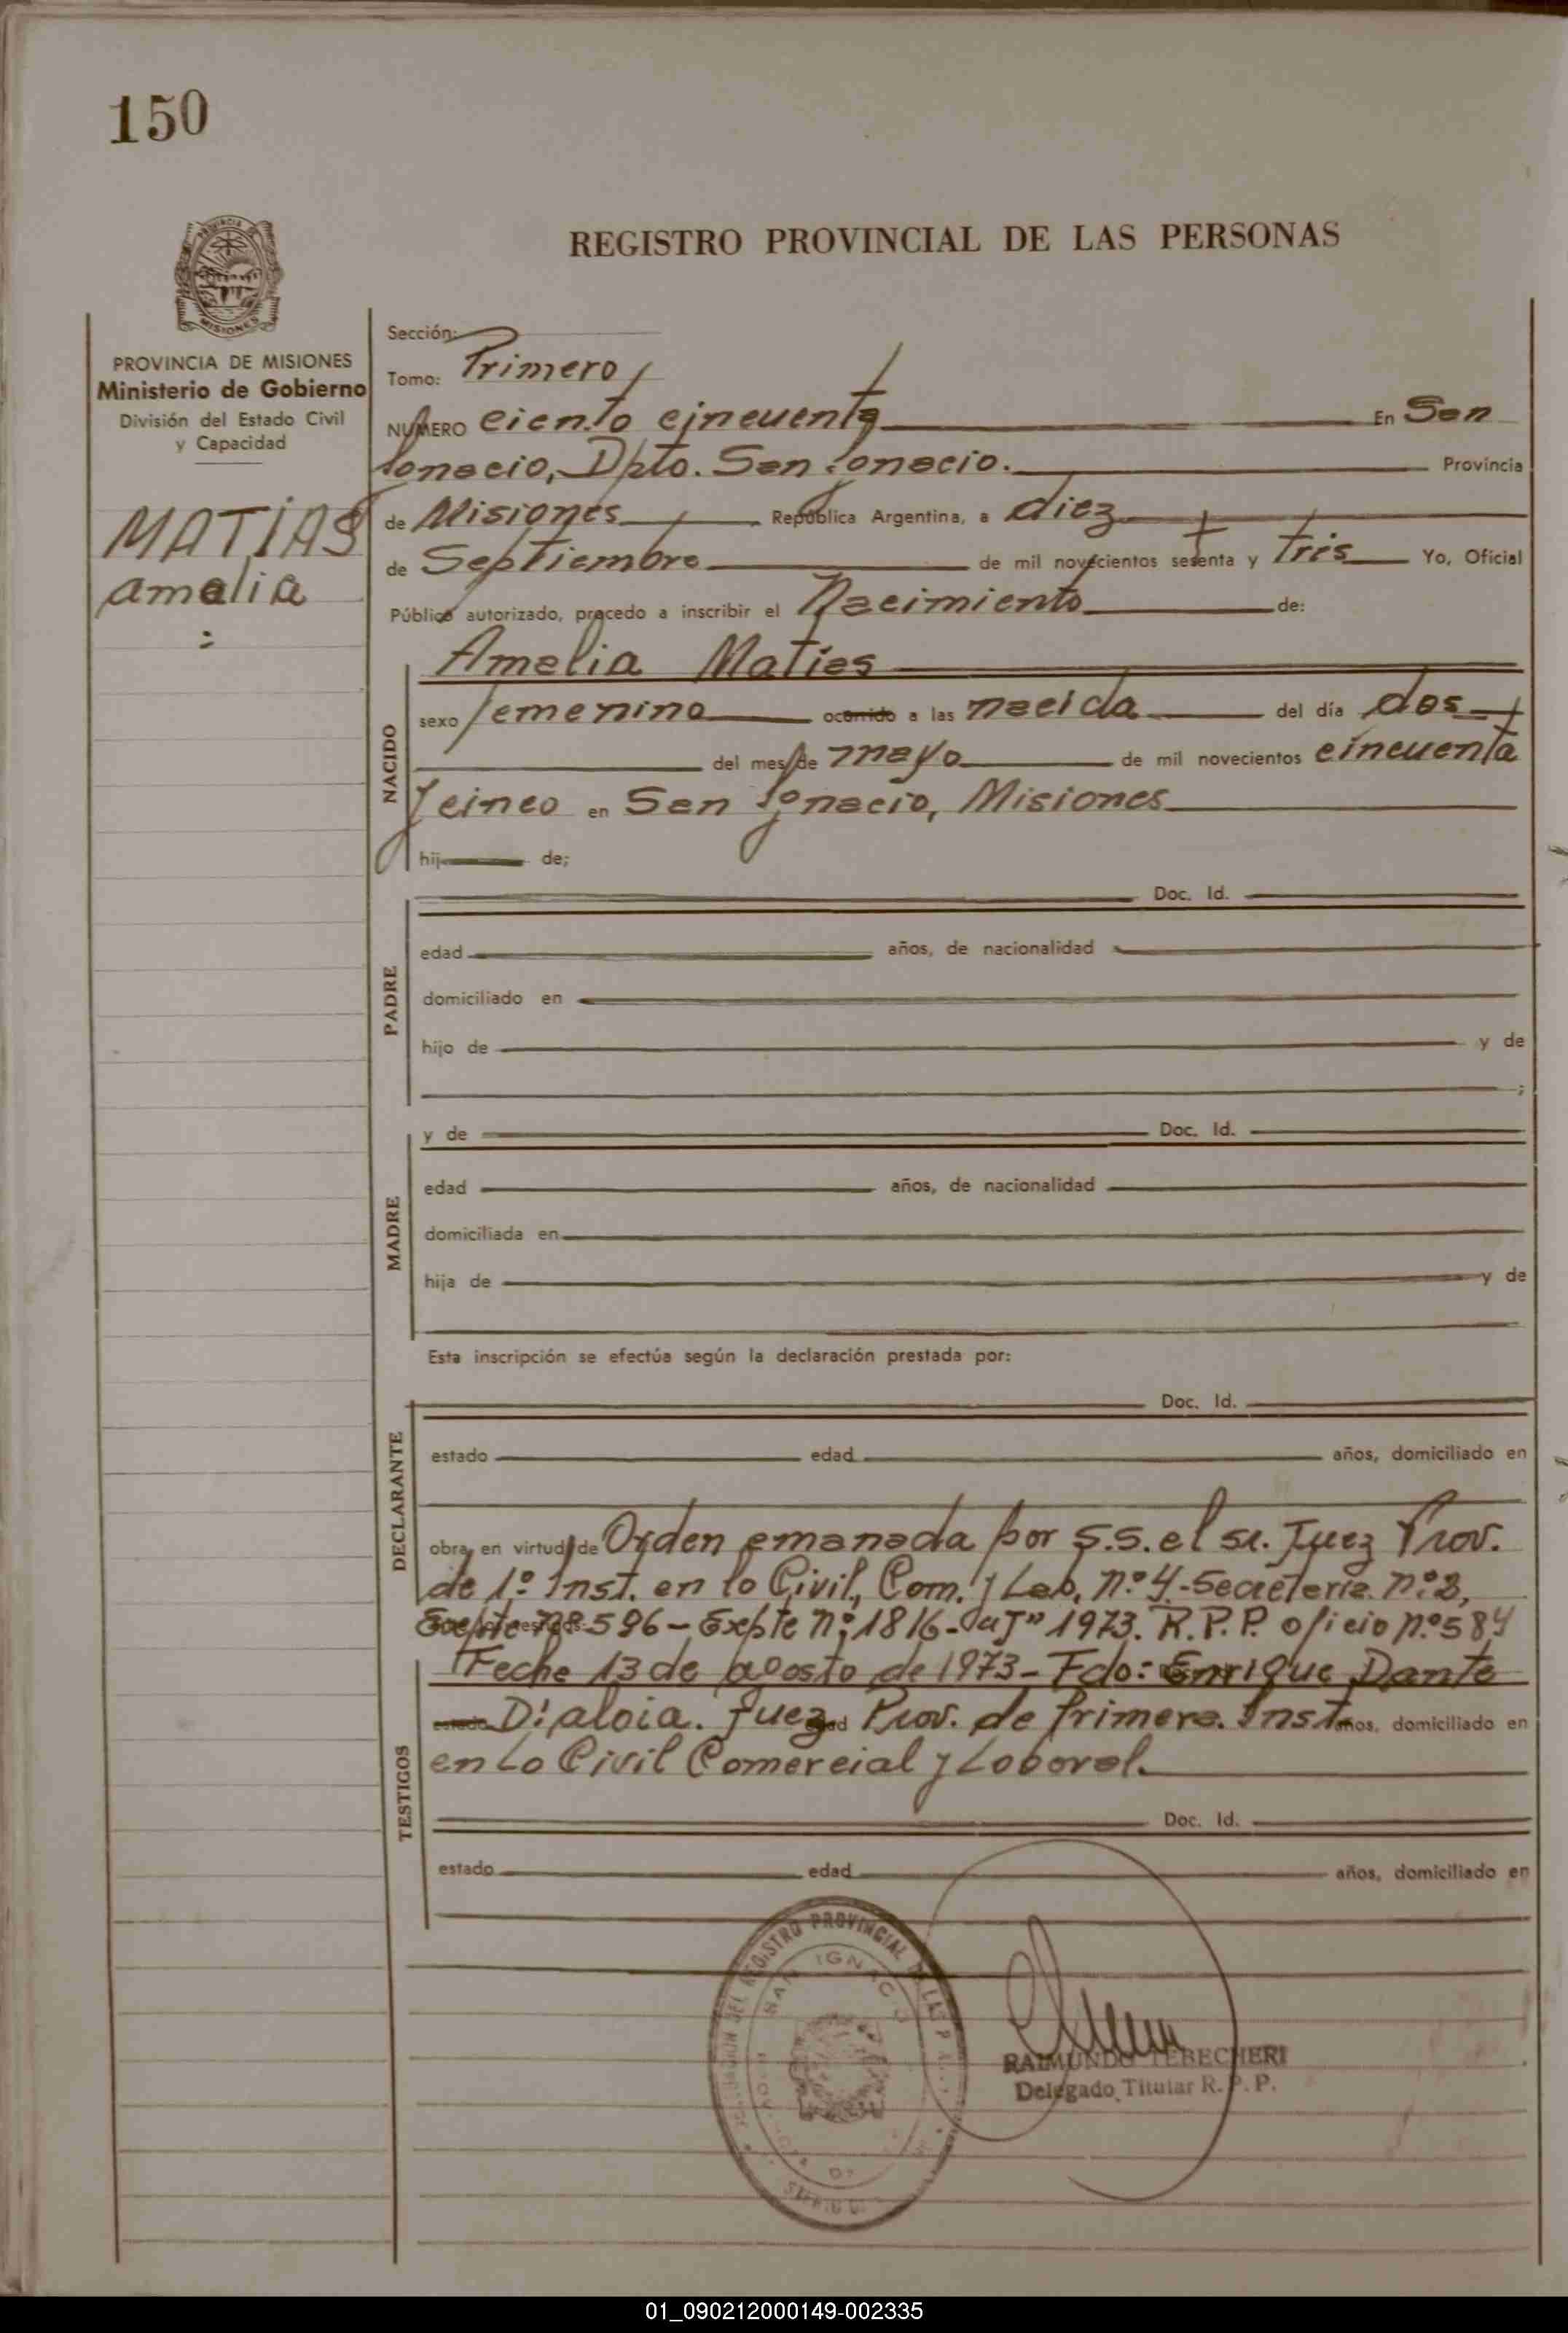 150
REGISTRO PROVINCIAL DE LAS PERSONAS
PROVINCIA DE MISIONES
Ministerio de Gobierno
División del Estado Civil
y Capacidad
MATIAS
Amalia
Sección:
Tomo: Primero
NUMERO Ciento cincuenta En San
Ignacio, Dpto. San Ignacio. Provincia
de Misiones República Argentina, a diez
de Septiembre de mil novecientos setenta y tres Yo, Oficial
Público autorizado, procedo a inscribir el Nacimiento de:
NACIDO
Amalia Matias
sexo femenino ocurrido a las nacida del día dos
del mes de mayo de mil novecientos cincuenta
y cinco en San Ignacio, Misiones
hij de;
PADRE
Doc. Id.
edad años, de nacionalidad
domiciliado en
hijo de y de
;
MADRE
y de Doc. Id.
edad años, de nacionalidad
domiciliada en
hija de y de
Esta inscripción se efectúa según la declaración prestada por:
DECLARANTE
Doc. Id.
estado edad años, domiciliado en
obra, en virtud de Orden emanada por S.S. el sr. Juez Prov.
de 1º Inst. en lo Civil, Com. y Lab, nº 4-Secretaria nº 2,
596- Expte nº 1816- 1973. R.P.P. oficio nº 584
Fecha 13 de agosto de 1973- Fdo: Enrique Dante
TESTIGOS
estado D'aloia. Juez Prov. de primera Inst. años, domiciliado en
en Lo Civil Comercial y Laboral.
Doc. Id.
estado edad años, domiciliado en
REGISTRO PROVINCIAL DE LAS
SAN IGNACIO
RAIMUNDO TEBECHERI
Delegado Titular R. P. P.
01_090212000149-002335